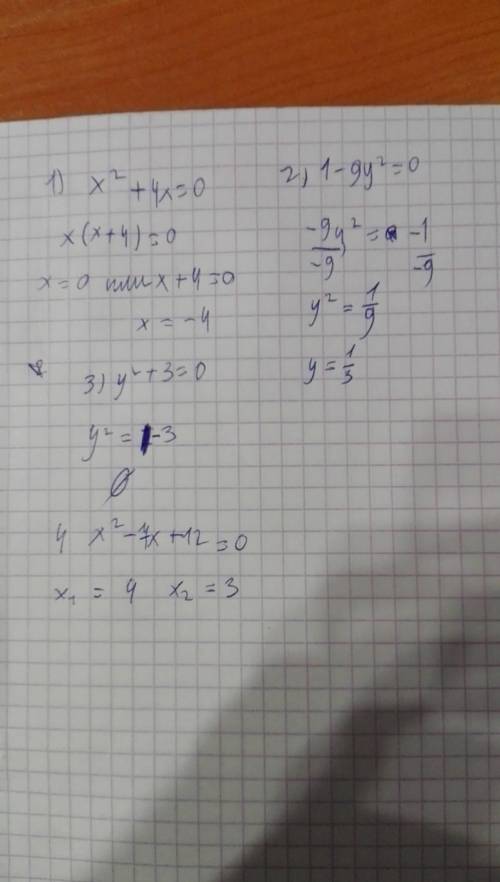 1) x² + 4x = 0
x(x+4) = 0
x = 0 или x + 4 = 0
x = -4
2) 1 - 9y² = 0
-9y²/-9 = -1/-9
y² = 1/9
y = 1/3
3) y² + 3 = 0
y² = -3
∅
4 x² - 7x + 12 = 0
x₁ = 4 x₂ = 3